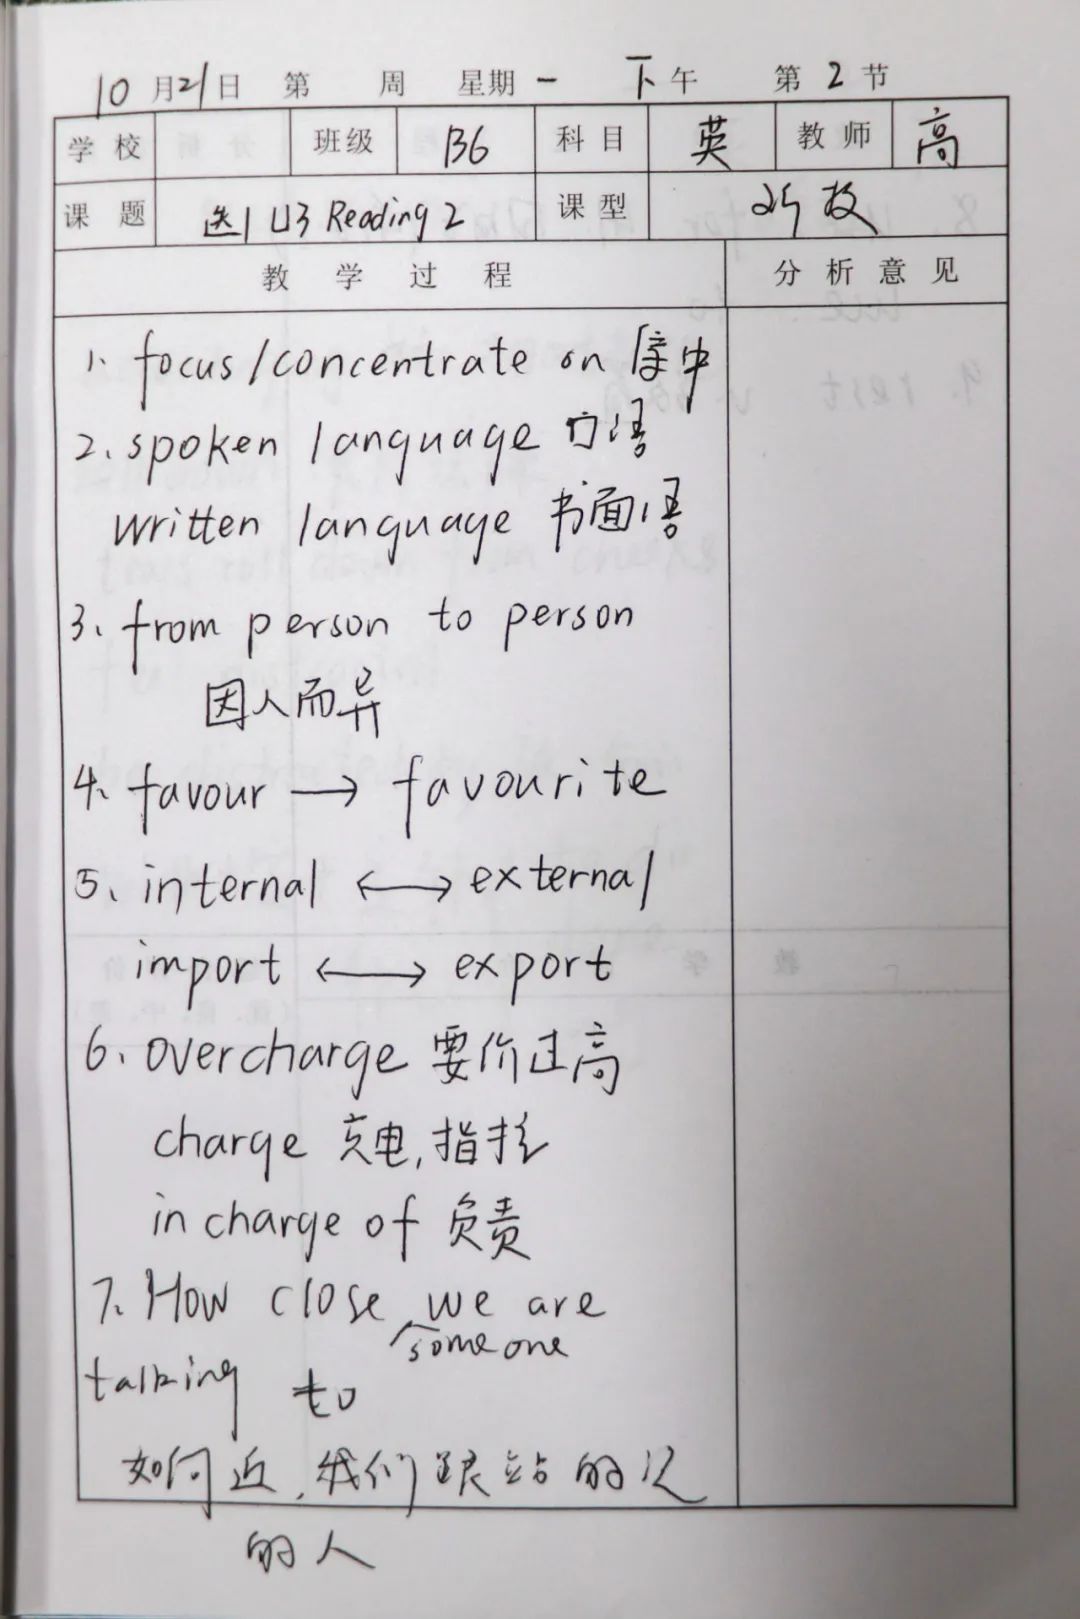 10月21日 第 周 星期一 下午 第2节
学校 班级 B6 科目 英 教师 高
课题 选1 U3 Reading 2 课型 听技
教学过程 分析意见
1. focus/concentrate on 集中
2. spoken language 口语
written language 书面语
3. from person to person
因人而异
4. favour → favourite
5. internal ↔ external
import ↔ export
6. overcharge 要价过高
charge 充电,指控
in charge of 负责
7. How close we are
someone
talking to
如何近,我们跟站的近
的人